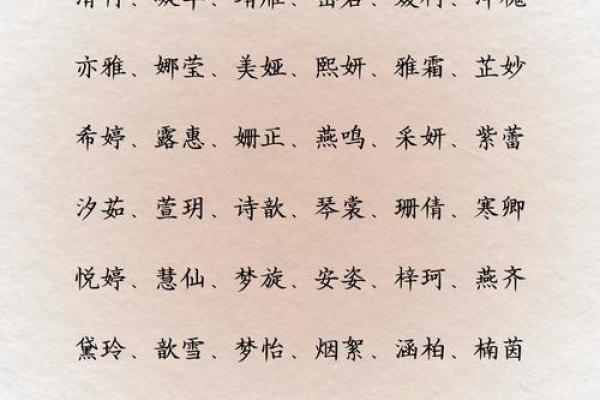 亦雅、娜莹、美娅、熙妍、雅霜、芷妙
希婷、露惠、姗正、燕鸣、采妍、紫蕾
汐茹、萱玥、诗歆、琴裳、珊倩、寒卿
悦婷、慧仙、梦旋、安姿、梓珂、燕齐
黛玲、歆雪、梦怡、烟絮、涵柏、楠茵